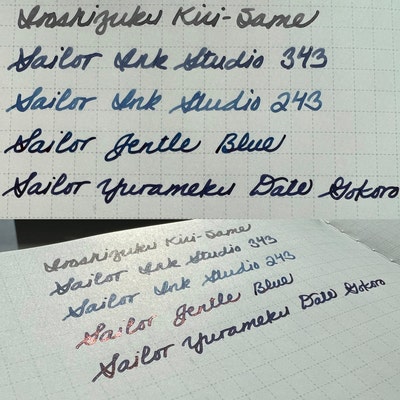 Iroshizuku Kiri-Same
Sailor Ink Studio 343
Sailor Ink Studio 243
Sailor Jentle Blue
Sailor Yurameku Date Gokoro
Iroshizuku Kiri-Same
Sailor Ink Studio 343
Sailor Ink Studio 243
Sailor Jentle Blue
Sailor Yurameku Date Gokoro